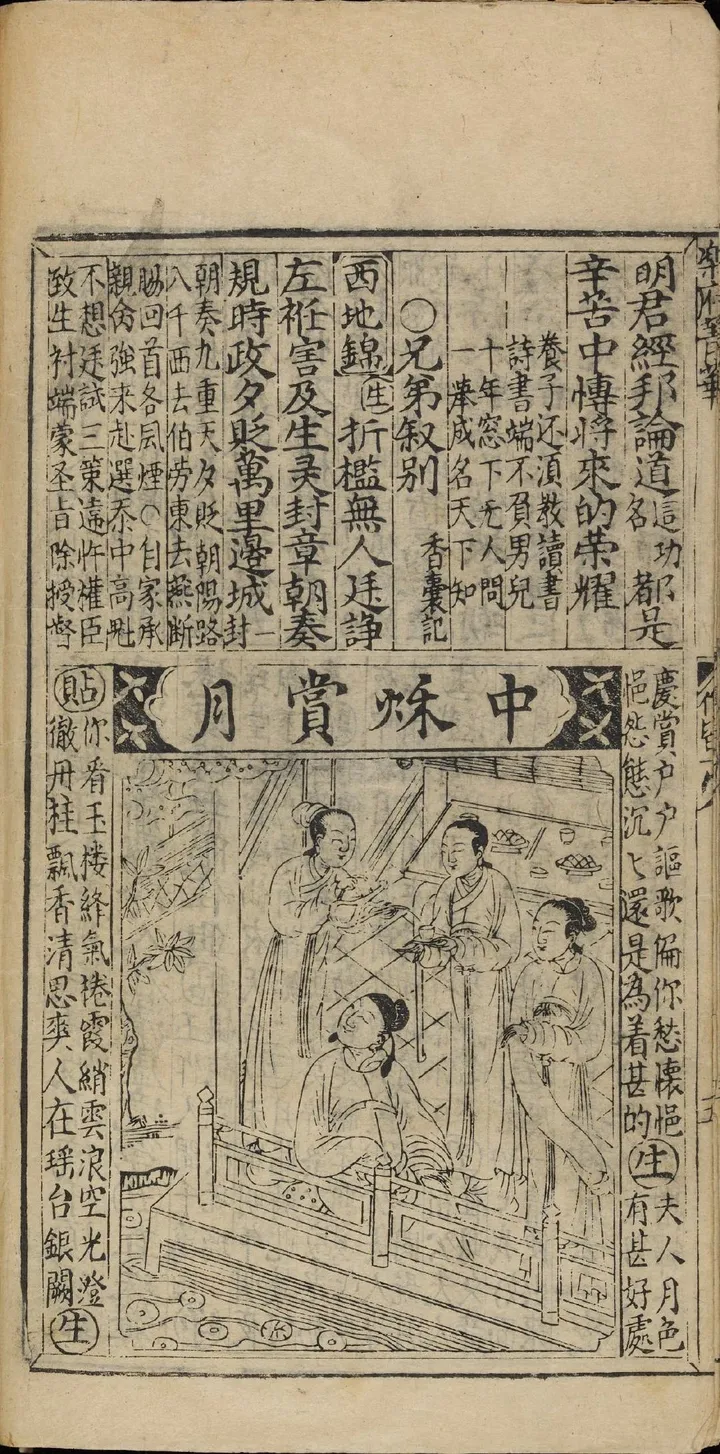 明君經邦論道這功名都是
辛苦中博將來的荣耀
養子还湏教讀書
詩書端不負男兒
十年窓下无人問
一举成名天下知
○兄弟叙别
香囊記
西地錦
生
折檻無人廷諍
左袵害及生灵封章朝奏
規時政夕貶萬里邊城
一封
朝奏九重天夕貶朝陽路
八千西去伯劳東去燕断
賜回首各风煙○自家承
親命強来赴選忝中高魁
不想廷試三策違忤權臣
致生衬端蒙圣旨除授督
中秌賞月
慶賞户户謳歌偏你愁懷悒
悒怨態沉七還是為着甚的
生
夫人月色
有甚好處
貼
你看玉楼絳氣捲霞綃雲浪空光澄
徹丹桂飄香清思爽人在瑶台銀闕
生